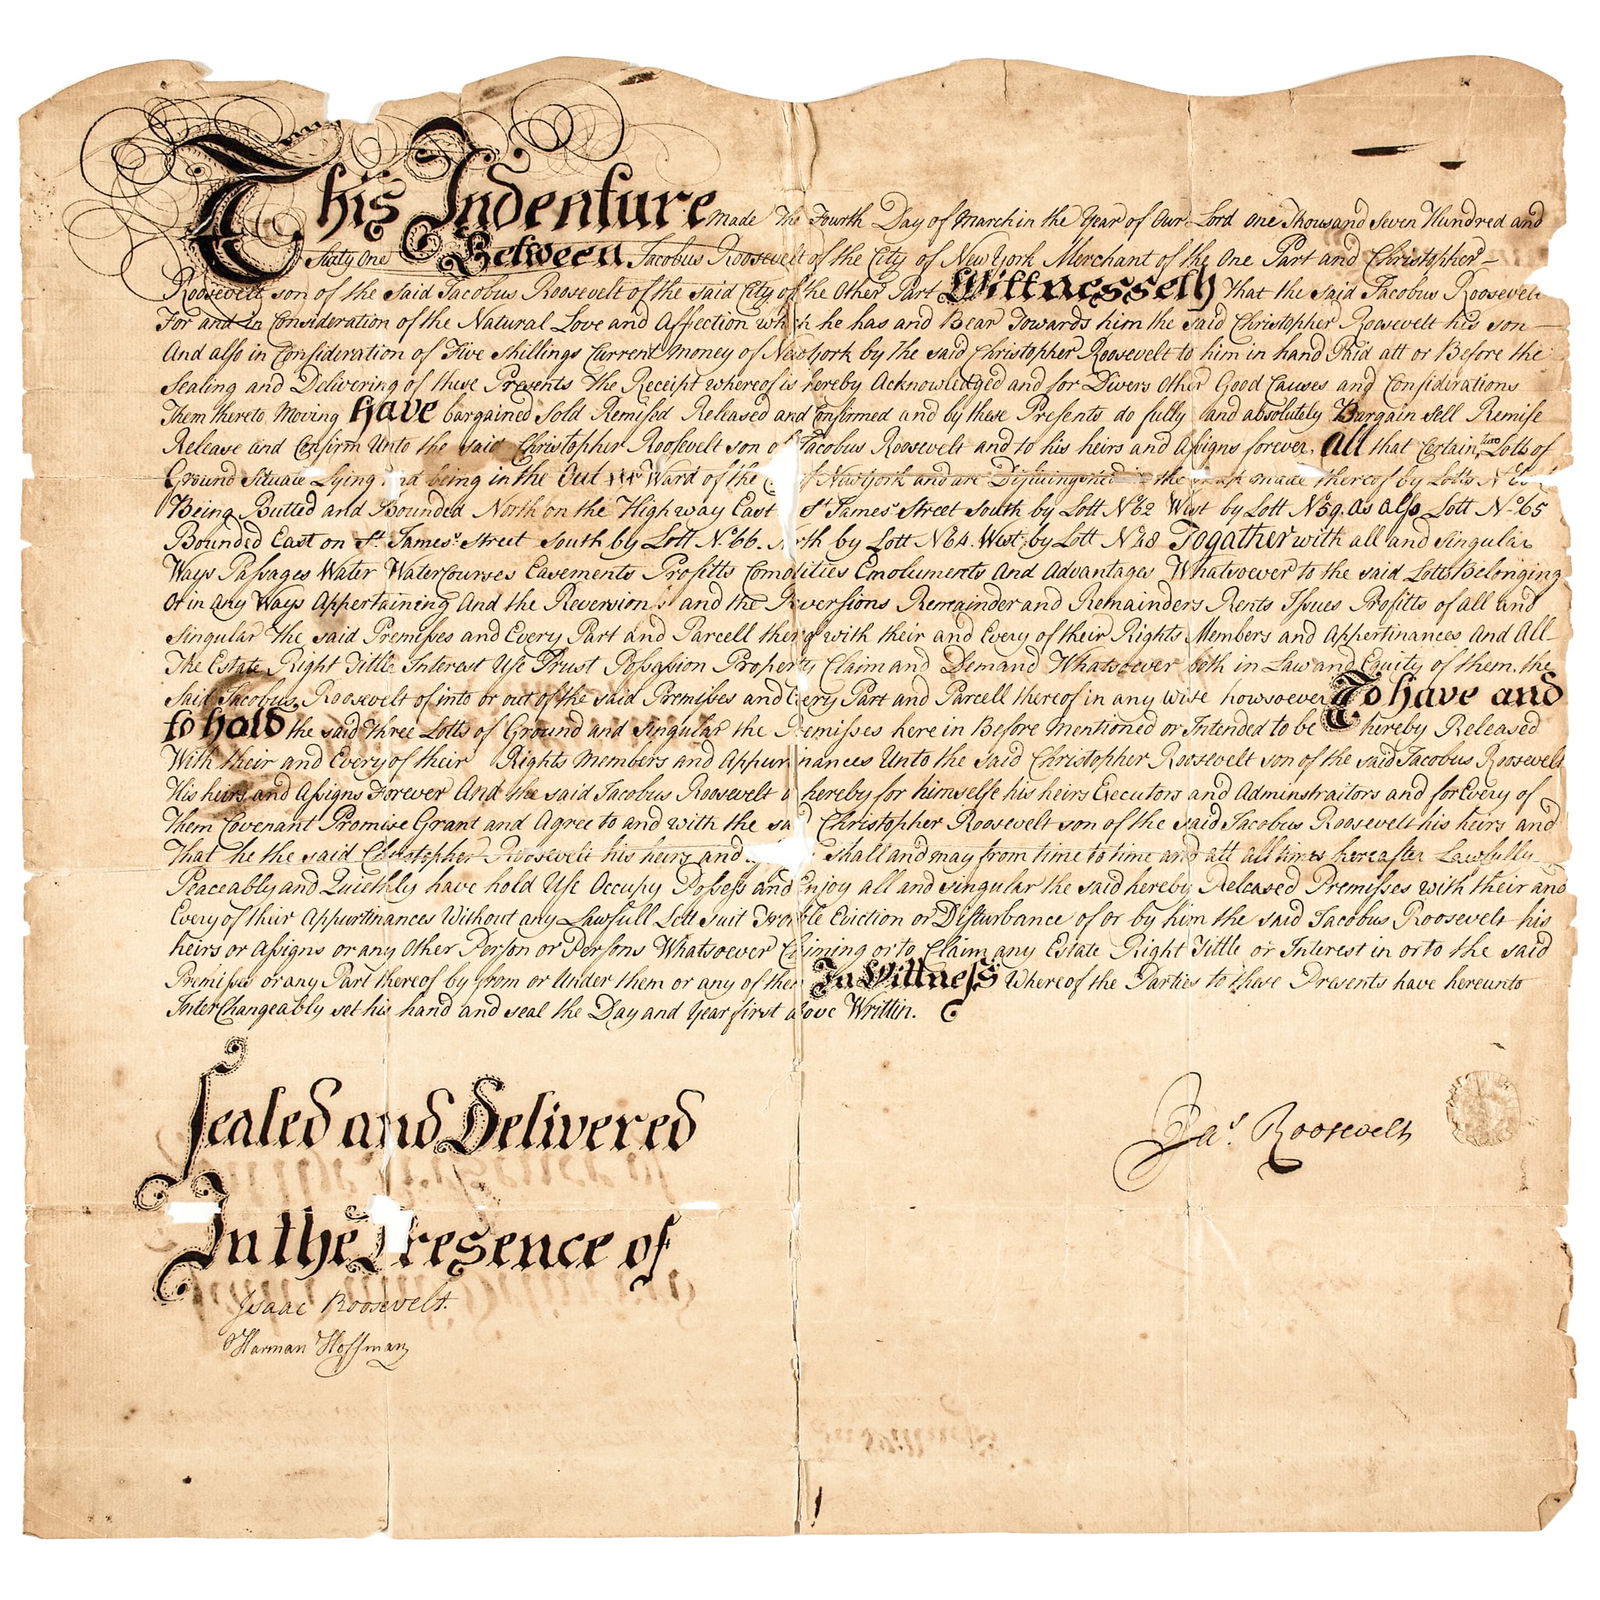 This Indenture made The Fourth Day of March in the Year of Our Lord One Thousand Seven Hundred and
Sixty One Between Jacobus Roosevelt of the City of New York Merchant of the One Part and Christopher
Roosevelt son of the Said Jacobus Roosevelt of the said City of the Other Part Wittnesseth That the Said Jacobus Roosevelt
For and in Consideration of the Natural Love and Affection which he has and Bear Towards him the said Christopher Roosevelt his son
And also in Consideration of Five Shillings Current money of New York by the said Christopher Roosevelt to him in hand Paid att or Before the
Sealing and Delivering of these Presents The Receipt whereof is hereby Acknowledged and for Divers Other Good Causes and Considerations
Them thereto Moving have bargained Sold Remised Released and Confirmed and by these Presents do fully and absolutely Bargain Sell Remise
Release and Confirm Unto the said Christopher Roosevelt son of Jacobus Roosevelt and to his heirs and Assigns forever, all that Certain two Lotts of
Ground Situate Lying and being in the Out Ward of the of New York and are in the made thereof by Lotts
Being Butted and Bounded North on the High way East St James' Street South by Lott No 62 West by Lott No 59. as also Lott No 65
Bounded East on St. James' Street South by Lott No. 66. North by Lott No 64. West by Lott No 48 Togather with all and Singular
Ways Passages Water Watercourses Easements Profitts Comodities Emoluments And Advantages Whatsoever to the said Lotts Belonging
Or in Any Ways Appertaining And the Reversion and the Reversions Remainder and Remainders Rents Issues Profitts of all and
Singular the said Premisses and Every Part and Parcell thereof with their and Every of their Rights Members and Appertinances And All
The Estate Right Tittle Interest Use Trust Possassion Property Claim and Demand Whatsoever both in Law and Equity of them the
Said Jacobus Roosevelt of into or out of the said Premisses and Every Part and Parcell thereof in any wise howsoever To have and
to hold the said Three Lotts of Ground and Singular the Premisses here in Before mentioned or Intended to be hereby Released
With their and Every of their Rights Members and Appurtinances Unto the said Christopher Roosevelt son of the said Jacobus Roosevelt
His heirs and Assigns Forever And the said Jacobus Roosevelt hereby for himselfe his heirs Executors and Adminstraitors and for Every of
Them Covenant Promise Grant and Agree to and with the said Christopher Roosevelt son of the said Jacobus Roosevelt his heirs and
That he the said Christopher Roosevelt his heirs and shall and may from time to time and att all times hereafter Lawfully
Peaceably and Quiethly have hold Use Occupy Possess and Enjoy all and singular the said hereby Released Premisses with their and
Every of their Appurtinances Without any Lawfull Lett suit Trouble Eviction or Disturbance of or by him the said Jacobus Roosevelt his
heirs or Assigns or any Other Person or Persons Whatsoever Claiming or to Claim any Estate Right Tittle or Interest in or to the said
Premisses or any Part thereof by from or Under them or any of them In Wittness Whereof the Parties to these Presents have hereunto
InterChangeably set his hand and seal the Day and Year first above Writtin.
Sealed and Delivered
Jas. Roosevelt
In the Presence of
Isaac Roosevelt.
Harman Hoffman